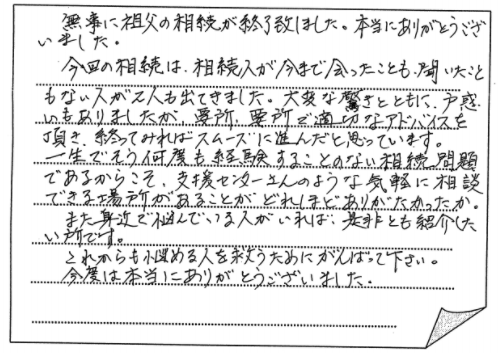 無事に祖父の相続が終了致しました。本当にありがとうござ
いました。
今回の相続は、相続人が今まで会ったことも、聞いたこと
もない人が2人も出てきました。大変な驚きとともに、戸惑
いもありましたが、要所、要所で適切なアドバイスを
頂き、終ってみればスムーズに進んだと思っています。
一生でそう何度も経験することのない相続問題
であるからこそ、支援センターさんのような気軽に相談
できる場所があることが、どれほどありがたかったか。
また身近で悩んでいる人がいれば、是非とも紹介した
い所です。
これからも悩める人を救うためにがんばって下さい。
今度は本当にありがとうございました。